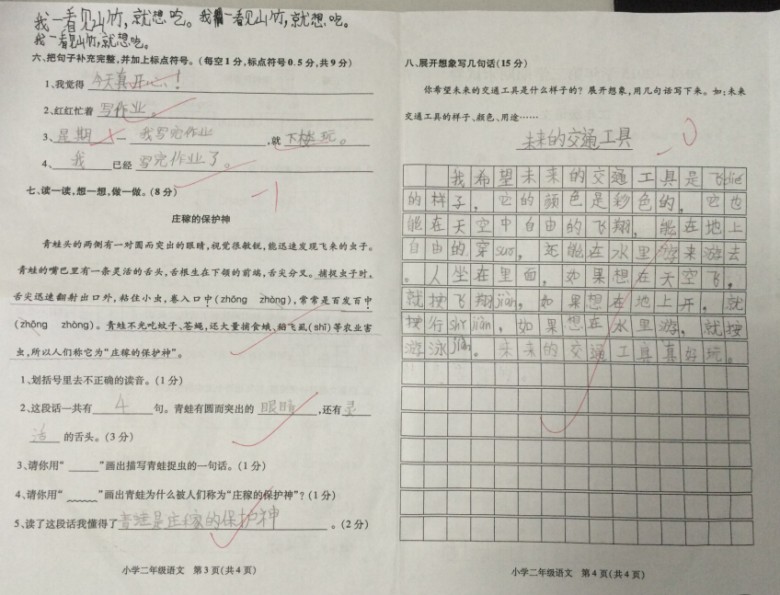 我一看见山竹,就想吃。我一看见山竹,就想吃。
我一看见山竹,就想吃。
六、把句子补充完整,并加上标点符号。(每空1分,标点符号0.5分,共9分)
1、我觉得 今天真开心!
2、红红忙着 写作业。
3、星期一 我写完作业 ,就 下楼玩。
4、我 已经 写完作业了。
-1
七、读一读,想一想,做一做。(8分)
庄稼的保护神
青蛙头的两侧有一对圆而突出的眼睛,视觉很敏锐,能迅速发现飞来的虫子。
青蛙的嘴巴里有一条灵活的舌头,舌根生在下颌的前端,舌尖分叉。捕捉虫子时,
舌尖迅速翻射出口外,粘住小虫,卷入口中(zhōng zhòng),常常是百发百中
(zhōng zhòng)。青蛙不光吃蚊子、苍蝇,还大量捕食蛾、稻飞虱(shī)等农业害
虫,所以人们称它为“庄稼的保护神”。
1、划括号里去不正确的读音。(1分)
2、这段话一共有 4 句。青蛙有圆而突出的 眼睛 ,还有 灵
活 的舌头。(3分)
3、请你用“____”画出描写青蛙捉虫的一句话。(1分)
4、请你用“﹏﹏”画出青蛙为什么被人们称为“庄稼的保护神”?(1分)
5、读了这段话我懂得了 青蛙是庄稼的保护神 。(2分)
小学二年级语文 第3页(共4页)
八、展开想象写几句话(15分)
你希望未来的交通工具是什么样子的?展开想象,用几句话写下来。如:未来
交通工具的样子、颜色、用途……
未来的交通工具
我希望未来的交通工具是飞die
的样子,它的颜色是彩色的,它也
能在天空中自由的飞翔,能在地上
自由的穿suo,还能在水里游来游去
。人坐在里面,如果想在天空飞,
就按飞翔jiàn,如果想在地上开,就
按行shǐ jiàn,如果想在水里游,就按
游泳jiàn。未来的交通工具真好玩。
小学二年级语文 第4页(共4页)